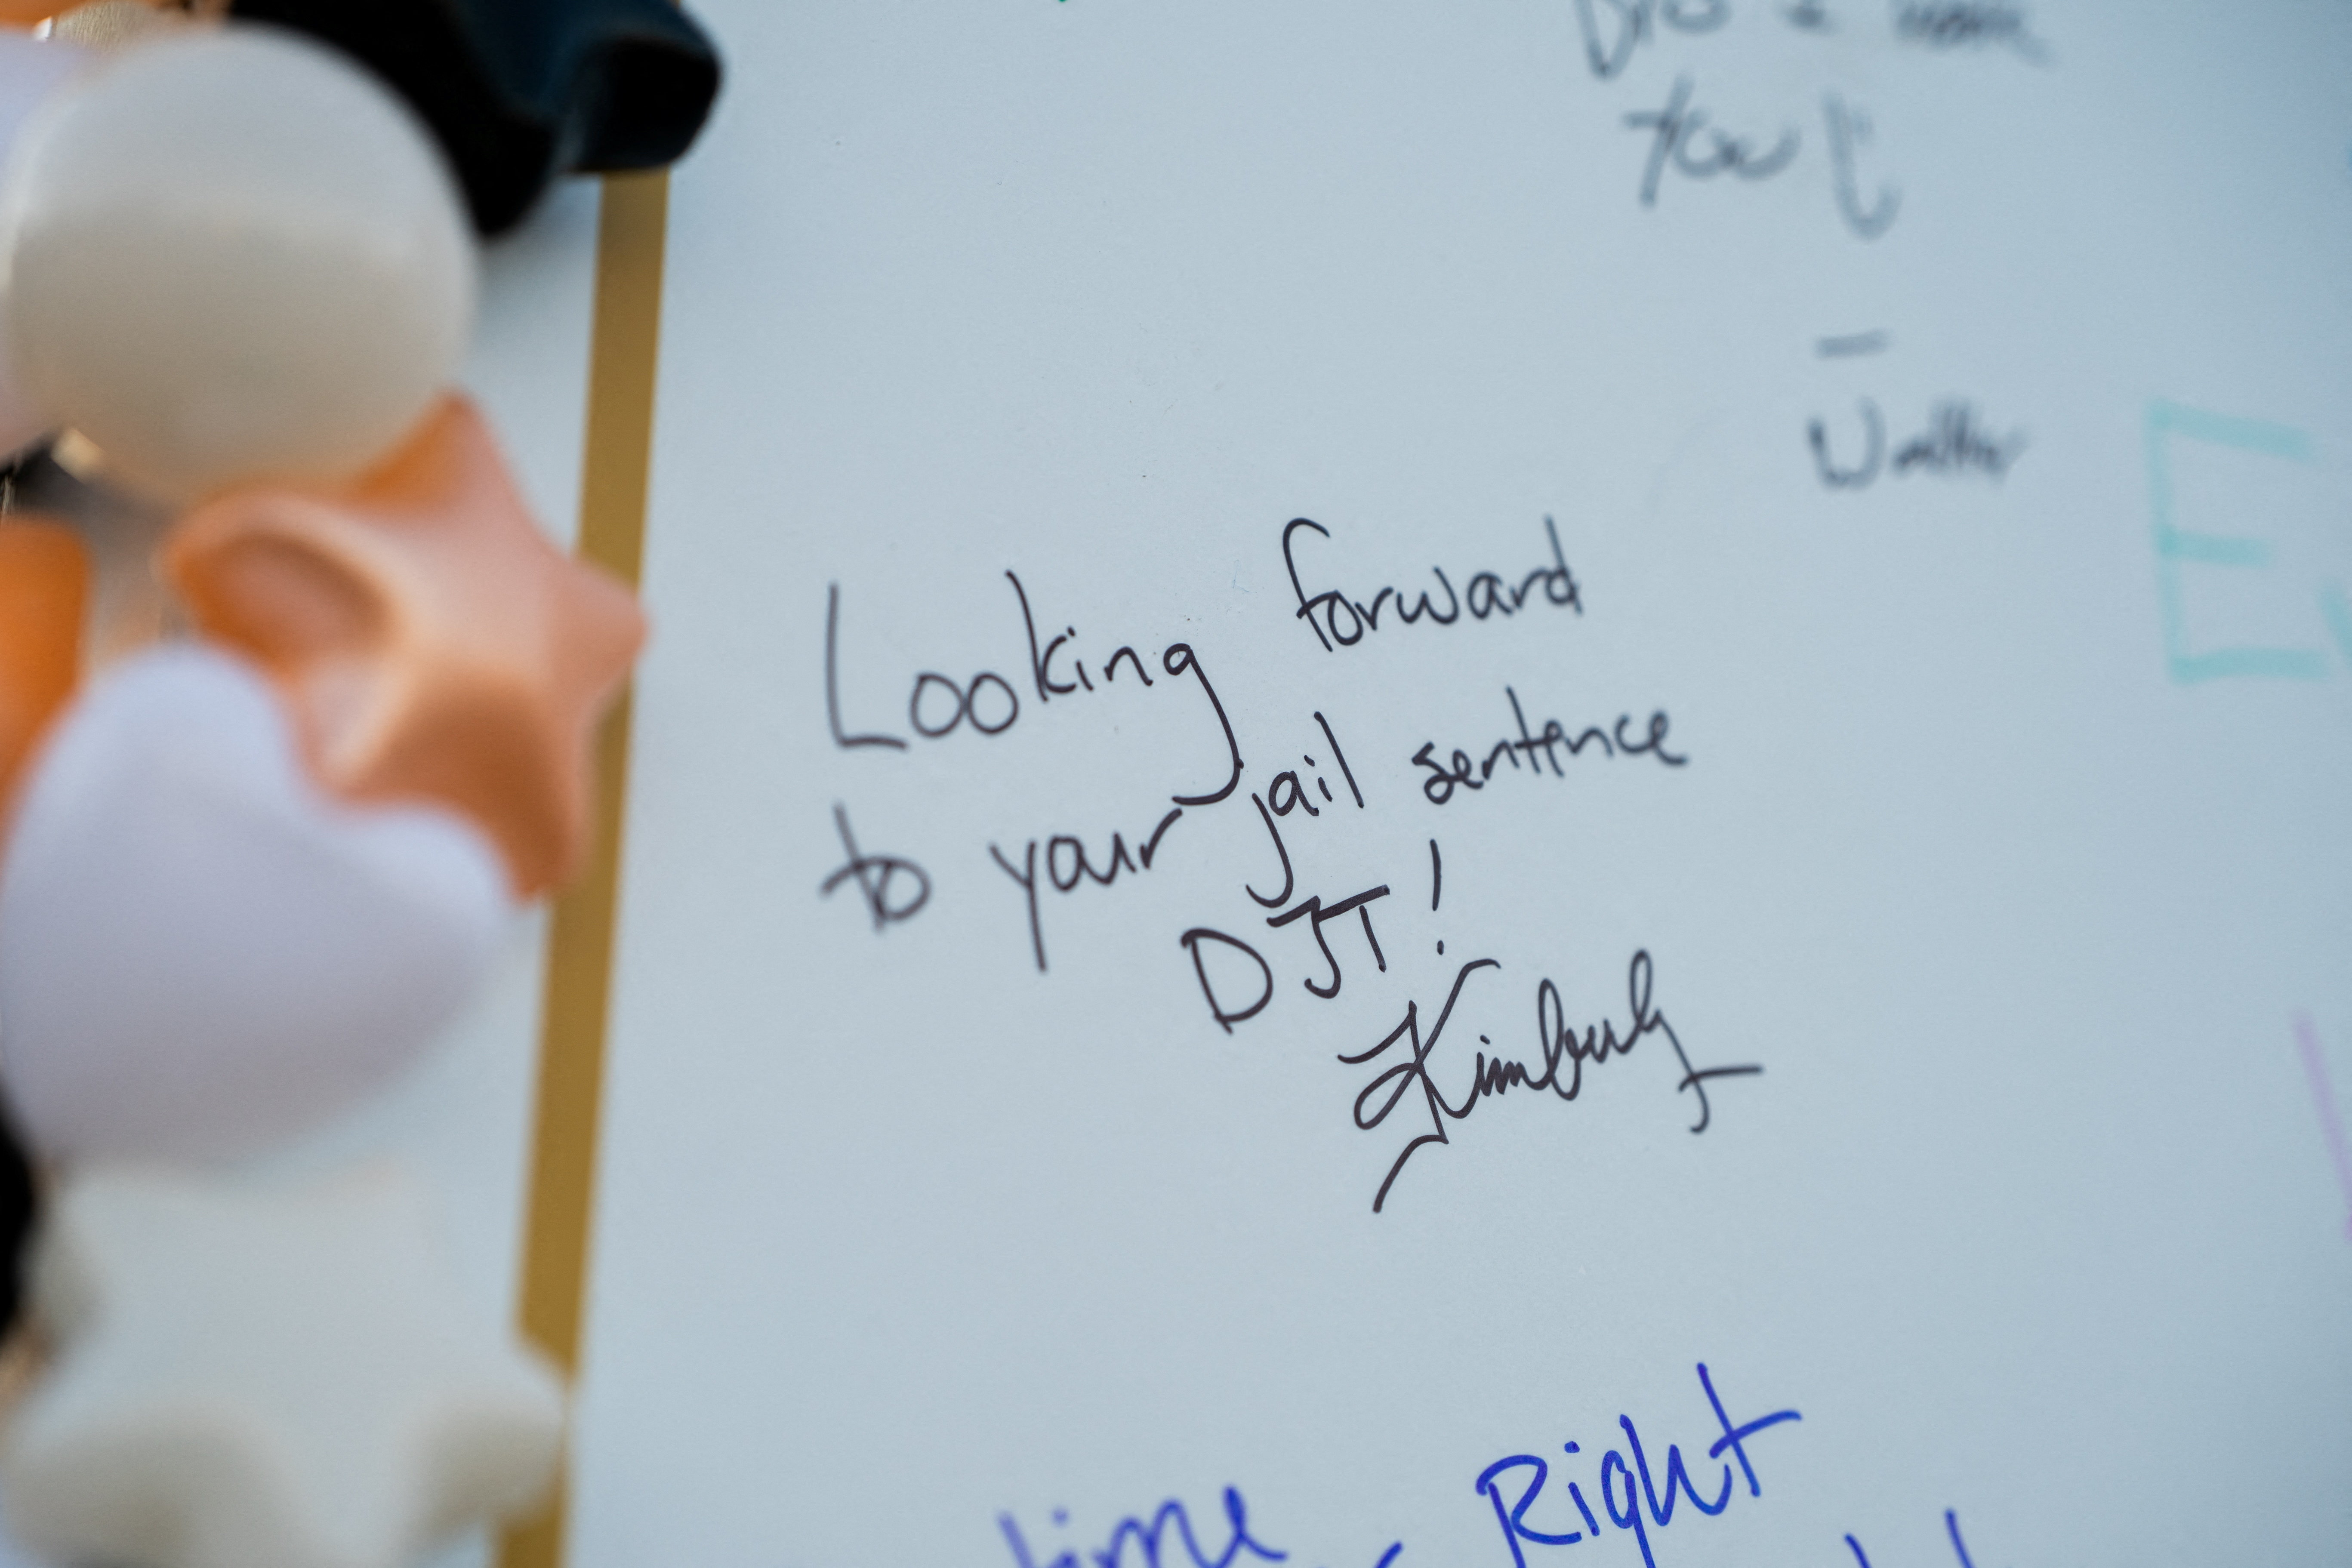 You!
- Walter
Looking forward
to your jail sentence
DJT!
Kimberly
time
Right